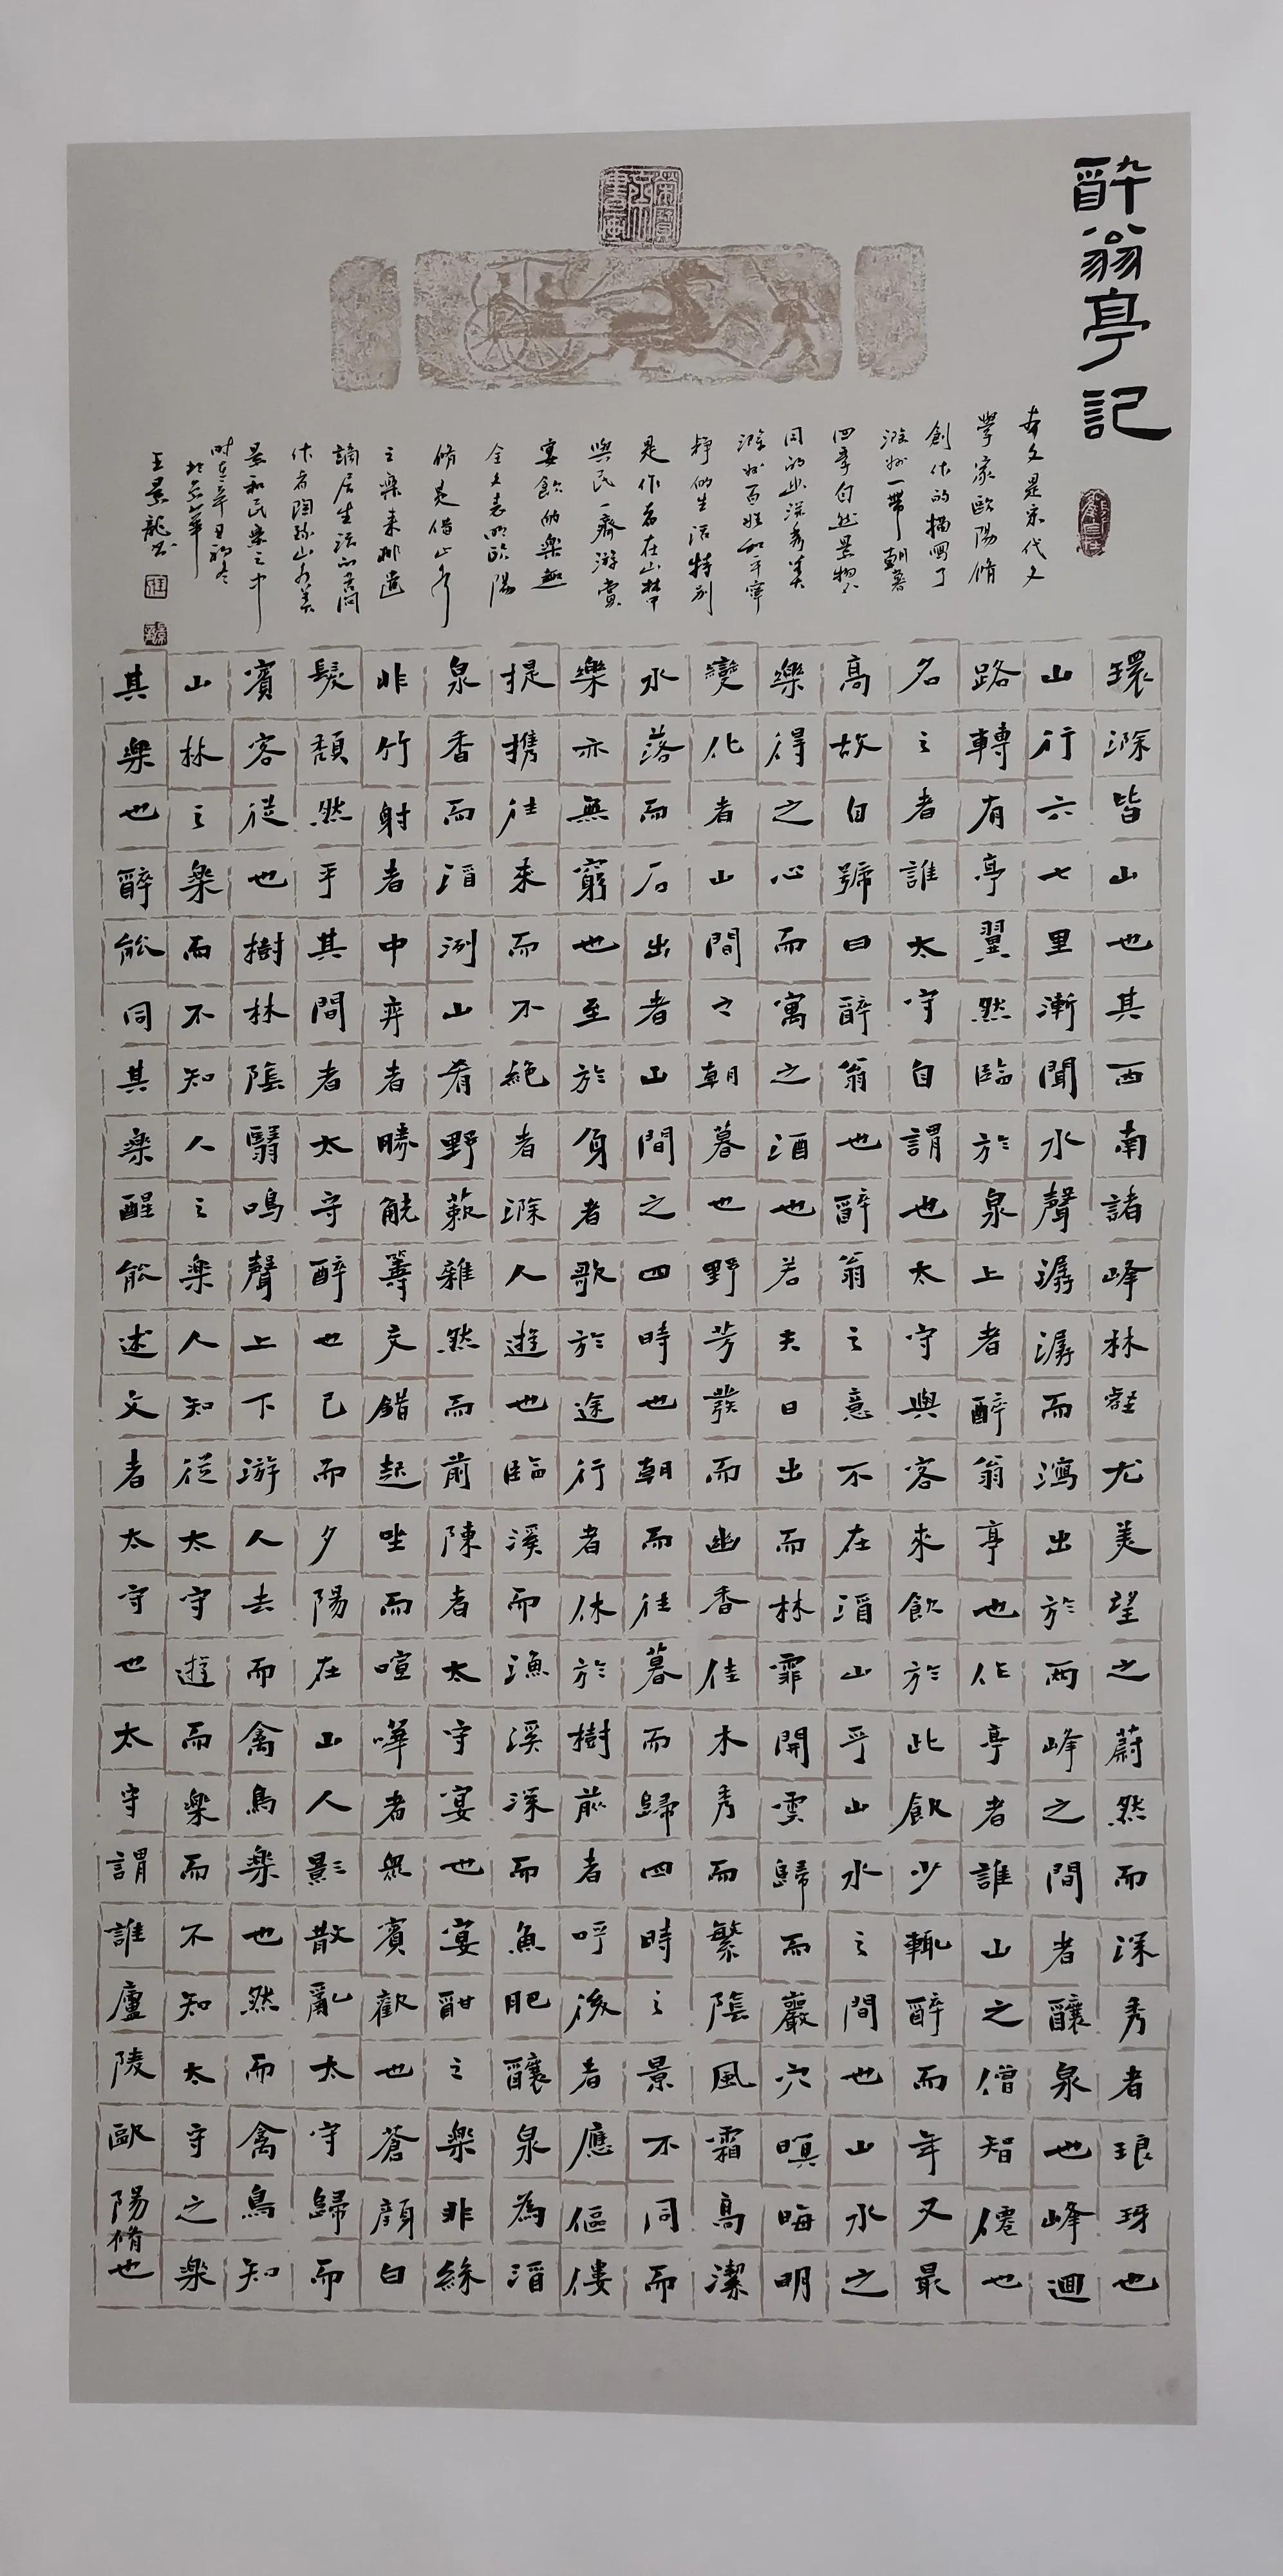 醉翁亭記
本文是宋代文
學家歐陽脩
創作的描寫了
滁州一帶朝暮
四季自然景物不
同的幽深秀美
滁州百姓和平寧
靜的生活特別
是作者在山林中
與民一齊游賞
宴飲的樂趣
全文表明歐陽
脩是借山水
之樂來排遣
謫居生活的苦悶
作者陶山水美
景和民樂之中
时在辛丑初冬
於京華
王景龍书
環滁皆山也其西南諸峰林壑尤美望之蔚然而深秀者琅玡也
山行六七里漸聞水聲潺潺而瀉出於兩峰之間者釀泉也峰迴
路轉有亭翼然臨於泉上者醉翁亭也作亭者誰山之僧智僊也
名之者誰太守自謂也太守與客來飲於此飲少輒醉而年又最
高故自號曰醉翁也醉翁之意不在酒山乎山水之間也山水之
樂得之心而寓之酒也若夫日出而林霏開雲歸而巖穴暝晦明
變化者山間之朝暮也野芳發而幽香佳木秀而繁陰風霜高潔
水落而石出者山間之四時也朝而往暮而歸四時之景不同而
樂亦無窮也至於負者歌於途行者休於樹前者呼後者應傴僂
提携往來而不絕者滁人遊也臨溪而漁溪深而魚肥釀泉為酒
泉香而酒洌山肴野蔌雜然而前陳者太守宴也宴酣之樂非絲
非竹射者中弈者勝觥籌交錯起坐而喧嘩者無賓歡也蒼顏白
髮頹然乎其間者太守醉也已而夕陽在山人影散亂太守歸而
賓客從也樹林陰翳鳴聲上下游人去而禽鳥樂也然而禽鳥知
山林之樂而不知人之樂人知從太守遊而樂而不知太守之樂
其樂也醉能同其樂醒能述文者太守也太守謂誰廬陵歐陽脩也